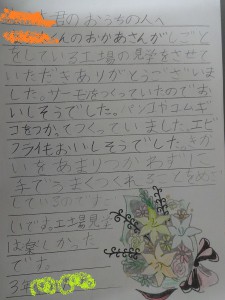 君のおうちの人へ
くんのおかあさんがしごと
をしている工場の見学をさせて
いただきありがとうございま
した。サーモンがつくっていたのでお
いしそうでした。パンコやコムギ
コをつかってつくっていました。エビ
フライもおいしそうでした。きか
いをあまりつかわずに
手でうまくつくれることを
しているのです
いです。工場見学
は楽しかった
でした。
3年